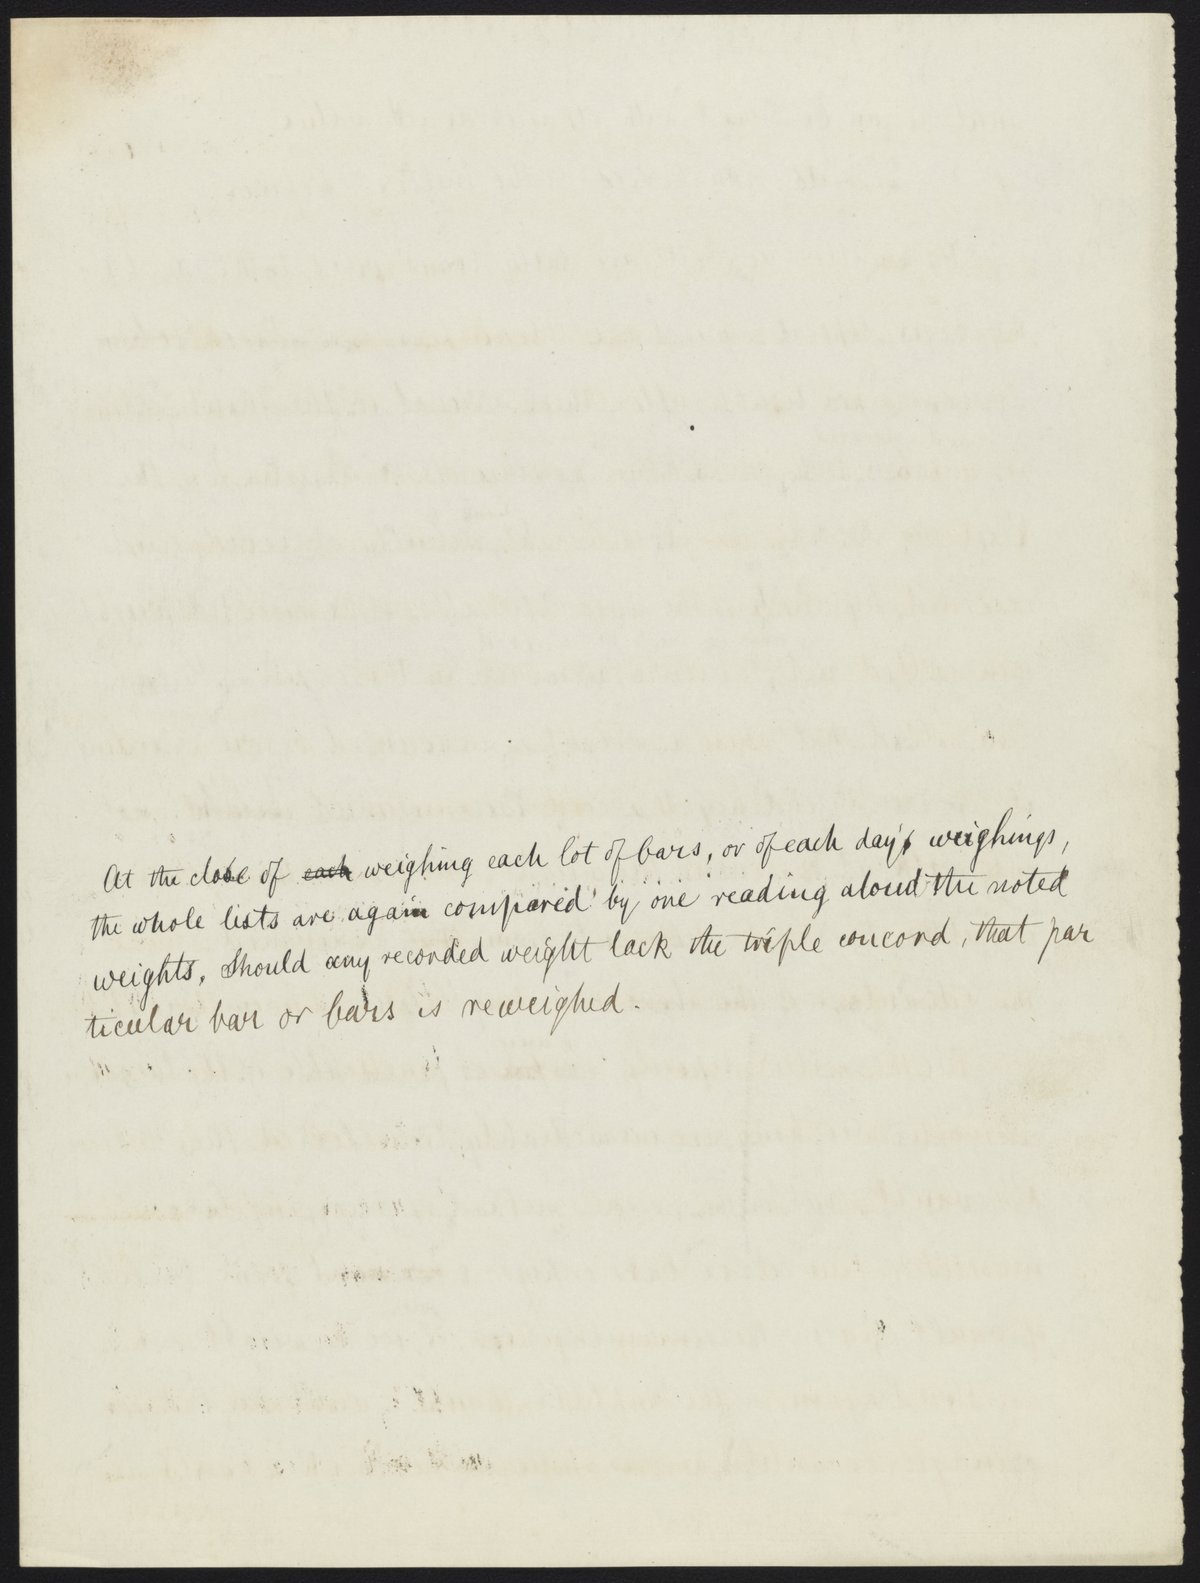 At the close of each weighing each lot of bars, or of each day's weighings,
the whole lists are again compared by one reading aloud the noted
weights. Should any recorded weight lack the triple concord, that par
ticular bar or bars is reweighed.